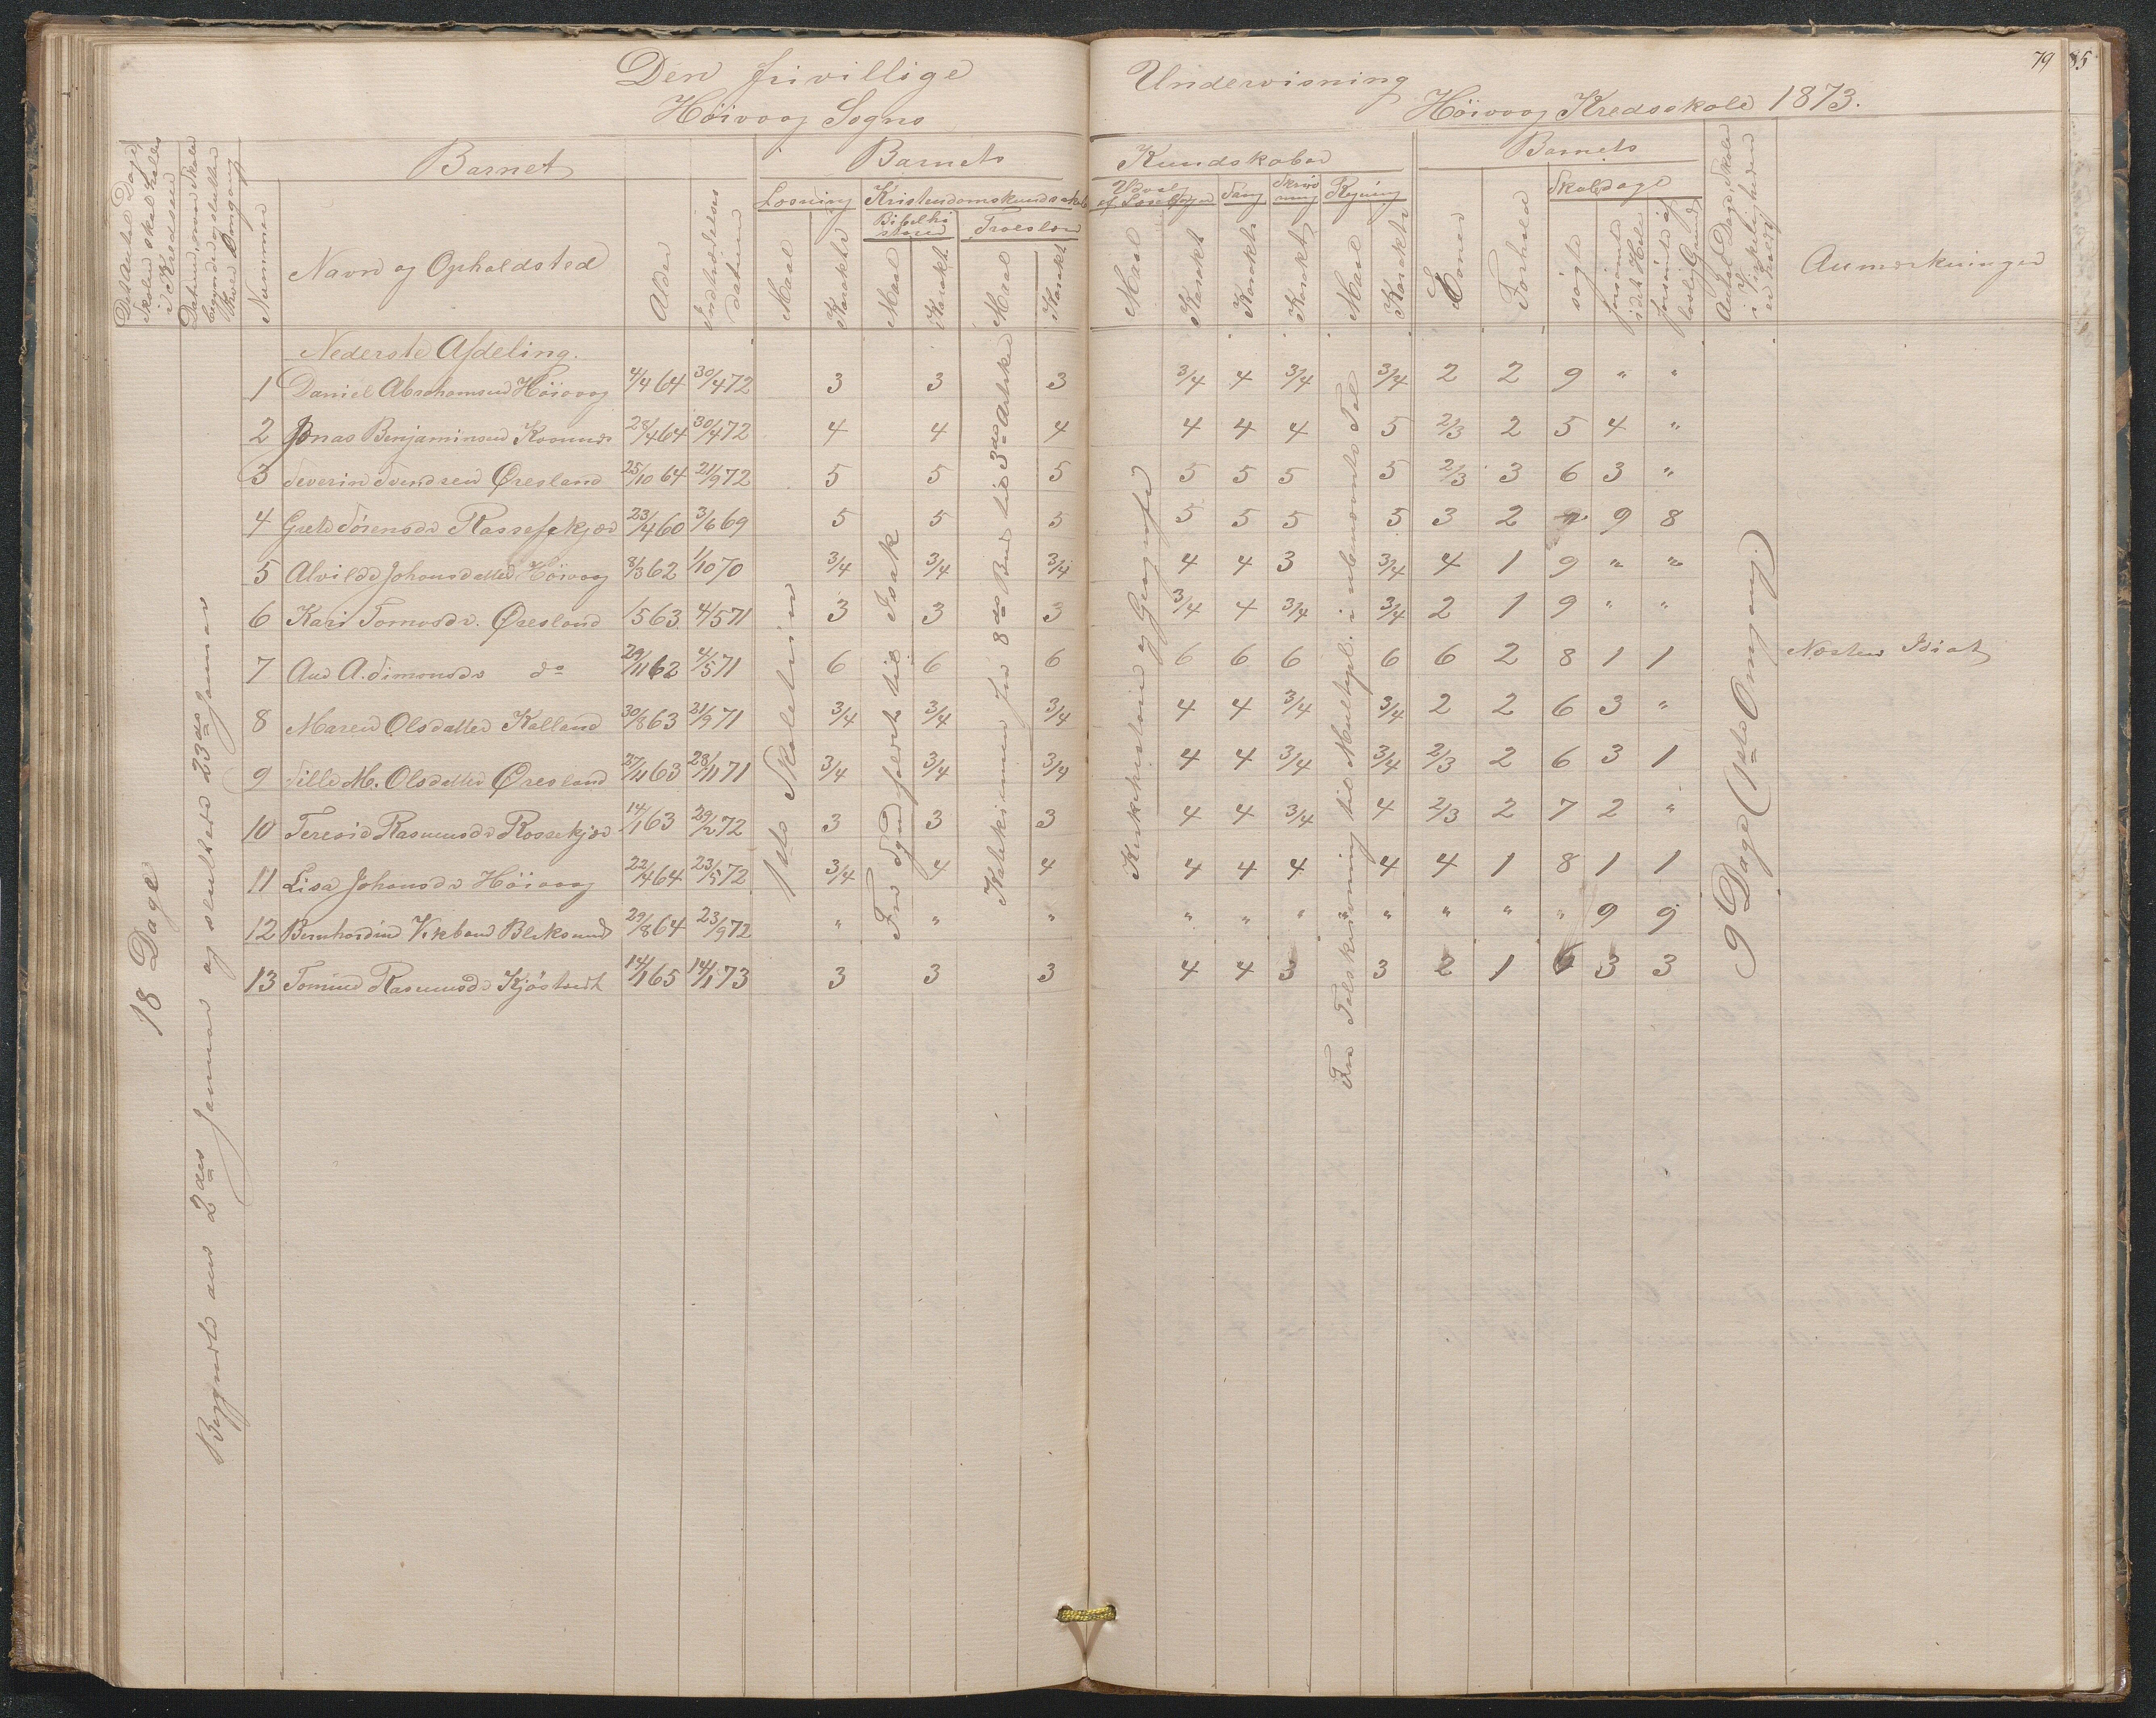 79
Den frivillige Undervisning
Höivaag Sogns Höivaag Kredsskole 1873.
Barnet
Barnets Kundskaber
Barnets
Nummer
Navn og Opholdsted
Alder
Indtrædelses datum
Læsning
Kristendomskundskab
Bibelhistorie
Troeslære
Udvalg af Læsebogen
Sang
Skrivning
Regning
Maal
Karakter
Maal
Karakt.
Maal
Karakt.
Maal
Karakt.
Karakt.
Karakt.
Maal
Karakter
Evner
Forhold
Skoledage
søgte
forsømte i det Hele
forsømte af
Anmærkninger
Nederste Afdeling.
1 Daniel Abrahamsen Höivaag 4/4 64 30/4 72 3 3 3 3/4 4 3/4 3/4 2 2 9 " "
2 Jonas Benjaminsen 23/4 64 30/4 72 4 4 4 4 4 4 5 2/3 2 5 4 "
3 Severin Svendsen Øresland 25/10 64 21/9 72 5 5 5 5 5 5 5 2/3 3 6 3 "
4 Grete Sørensdr 23/4 60 3/6 69 5 5 5 5 5 5 5 3 2 " 9 8
5 Alvilde Johansdatter Höivaag 8/3 62 1/10 70 3/4 3/4 3/4 4 4 3 3/4 4 1 9 " "
6 Kari Tomasdr. Øresland 1563 4/5 71 3 3 3 3/4 4 3/4 3/4 2 1 9 " "
7 A. Simonsdr do 29/11 62 4/5 71 6 6 6 6 6 6 6 6 2 8 1 1 Næsten Idiot
8 Maren Olsdatter Kalland 30/8 63 21/9 71 3/4 3/4 3/4 4 4 3/4 3/4 2 2 6 3 "
9 Sille M. Olsdatter Øresland 27/11 63 28/11 71 3/4 3/4 3/4 4 4 3/4 3/4 2/3 2 6 3 1
10 Teresie Rasmusdr Rossekjær 14/1 63 29/2 72 3 3 3 4 4 3/4 4 2/3 2 7 2 "
11 Lisa Johansdr Höivaag 22/4 64 23/5 72 3/4 4 4 4 4 4 4 4 1 8 1 1
12 29/8 64 23/9 72 " " " " " " " " " " 9 9
13 Tomine Rasmusdr 14/1 65 14/1 73 3 3 3 4 4 3 3 2 1 6 3 3
18 Dage
Begyndte den 2den Januar og sluttede 23de Januar
1ste Skoletrin
Fra Syndfaldet til Isak
Katekismen fra 8de Bud til 3de Artikel
Kirkehistorie og Geografi
Fra Talskrivning til Multipl. i ubenævnte Tal
9 Dage (1ste Omgang)